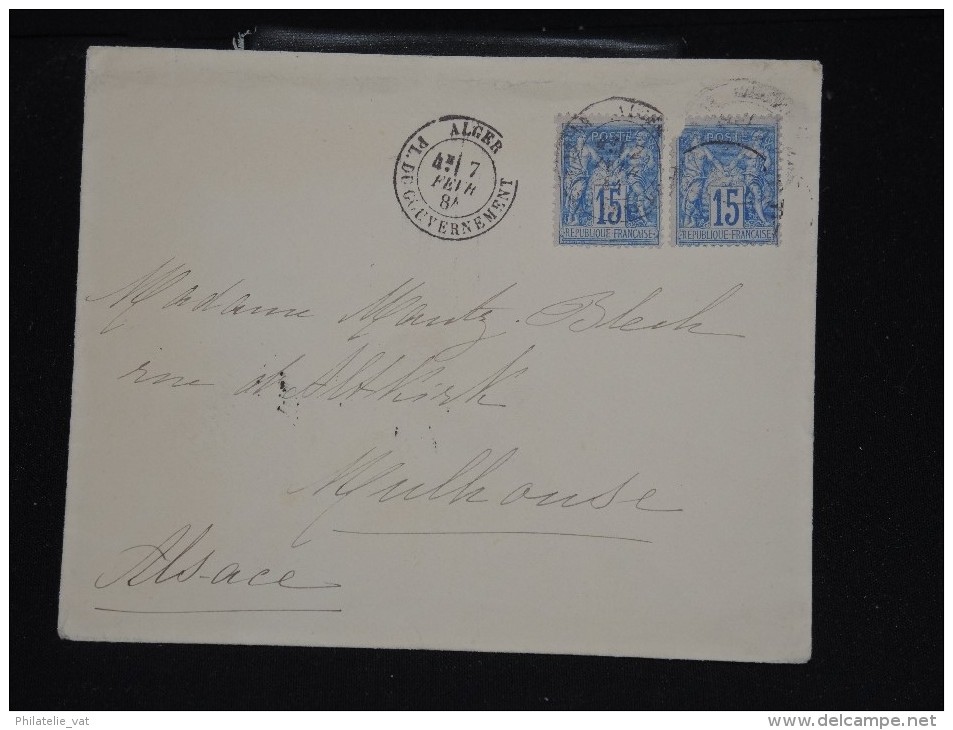 ALGER
PL. DU GOUVERNEMENT
7
FEVR
POSTE
15
REPUBLIQUE FRANCAISE
POSTE
15
REPUBLIQUE FRANCAISE
Madame Mantz-Blech
rue de Altkirk
Mulhouse
Alsace
Philatelie_vat
www.delcampe.net